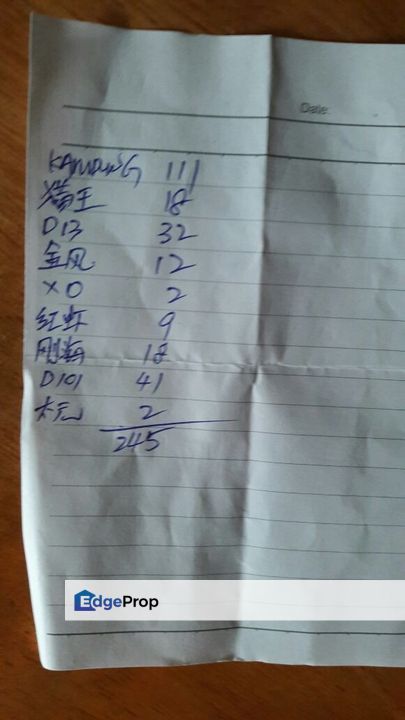 Date:
KAMPUNG 111
猫王 18
D13 32
金凤 12
XO 2
红虾 9
18
D101 41
2
245
EdgeProp